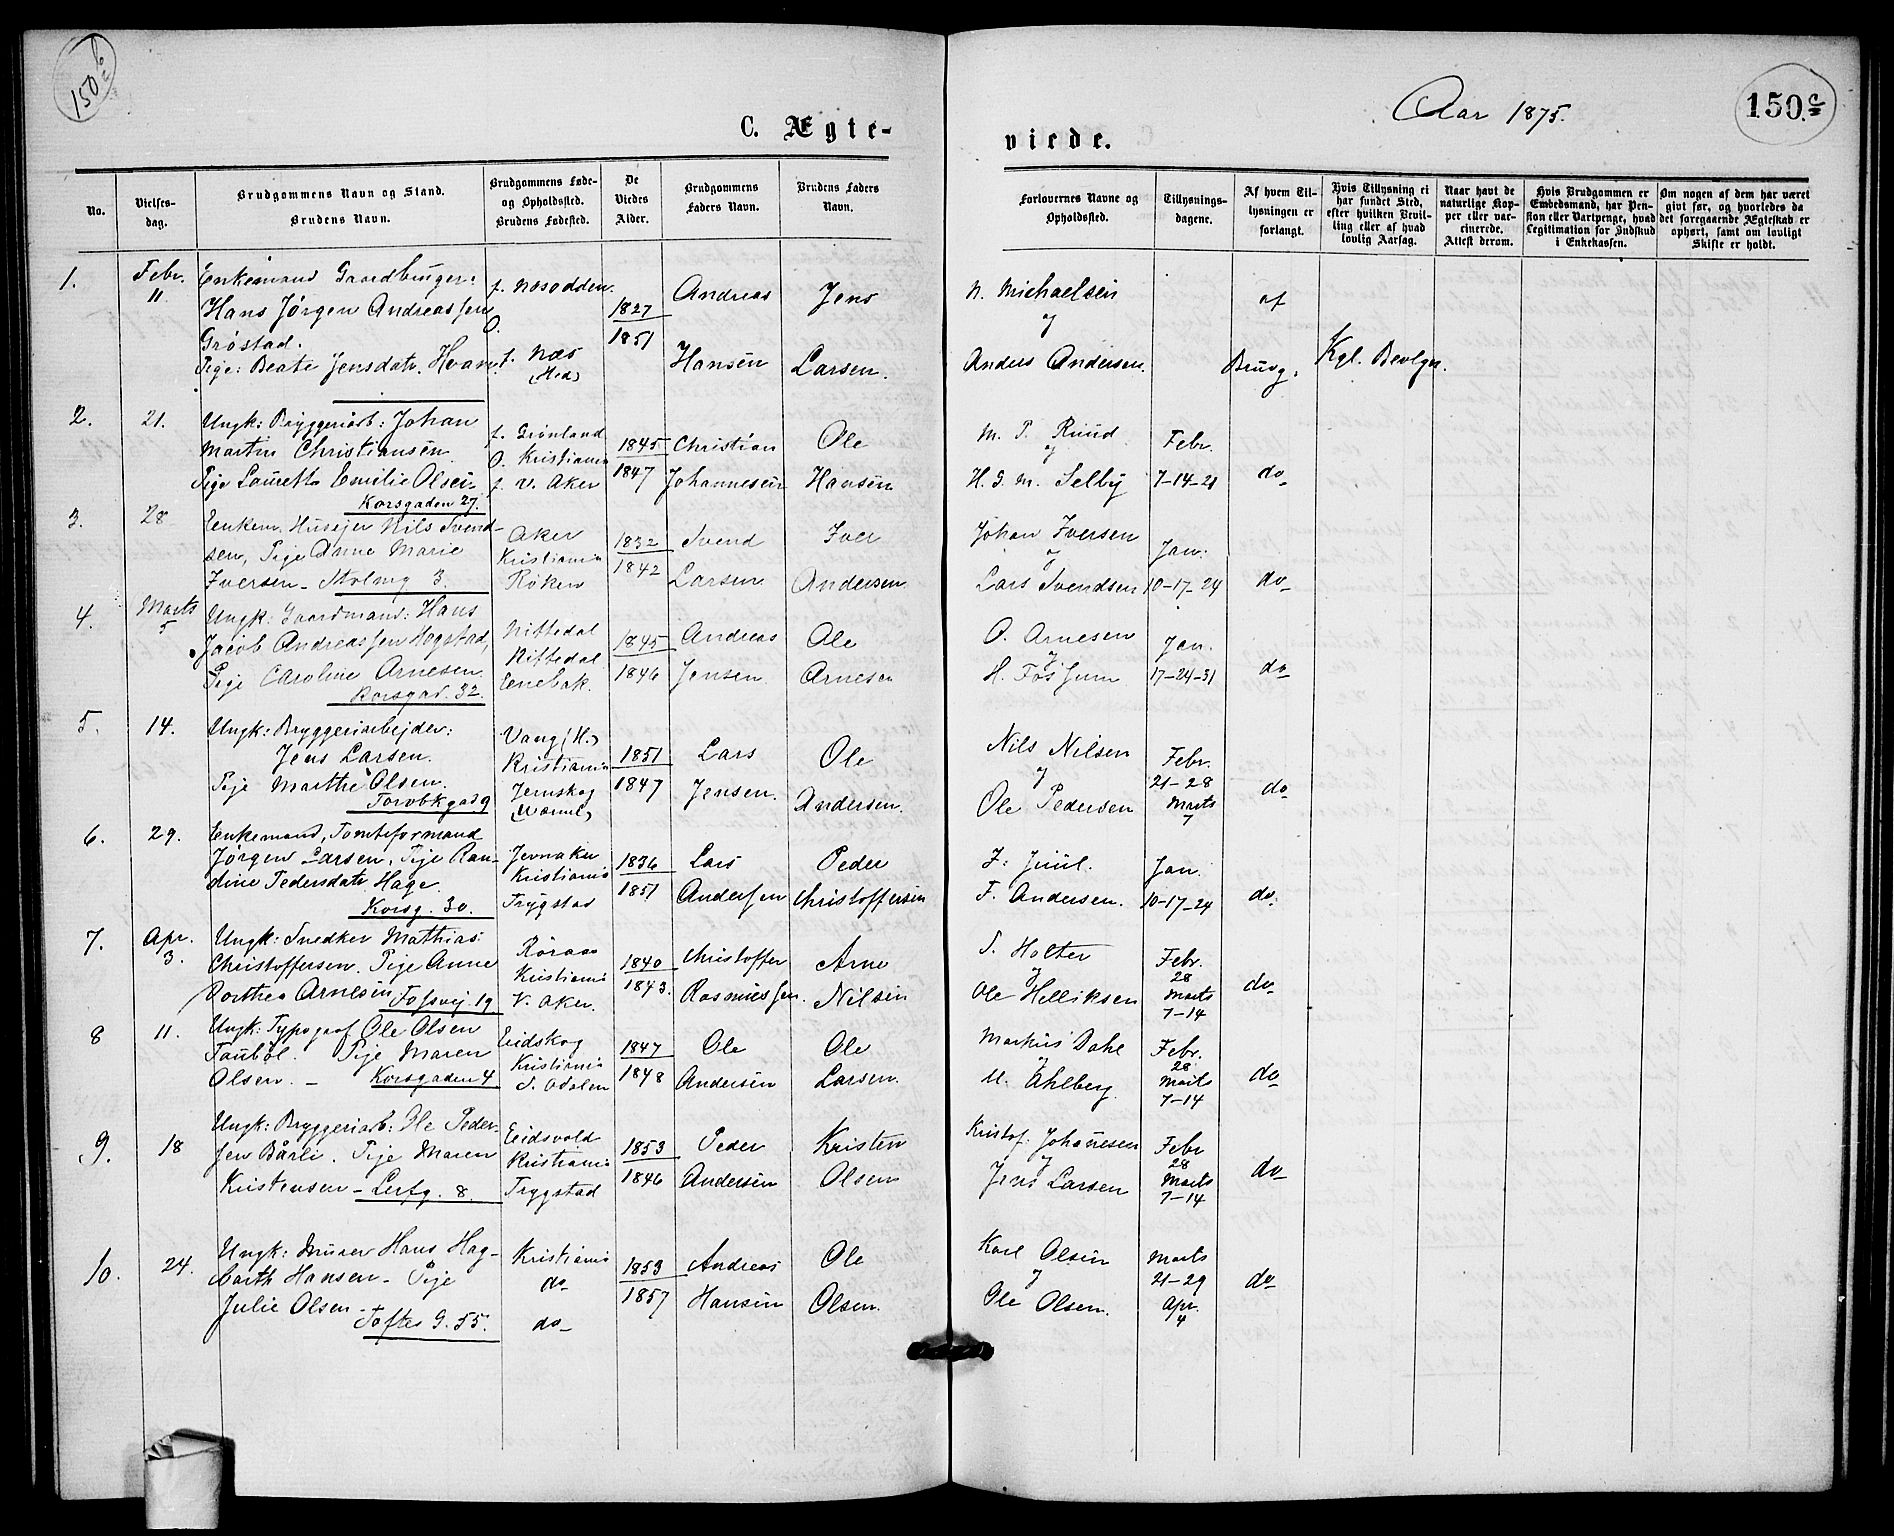 150 b
C. Ægte-
No.
Vielses-
dag.
Brudgommens Navn og Stand.
Brudens Navn.
Brudgommens Føde-
og Opholdssted.
Brudens Fødested.
De
Viedes
Alder.
Brudgommens
Faders Navn.
Brudens Faders
Navn.
1.
Febr.
11
Enkemand Gaardbruger:
Hans Jörgen Andreassen
Gröstad.
Pige: Beate Jensdatr. Hvam
f. Næsodden.
O.
f. Næs
(Hed)
1827
1851
Andreas
Hansen
Jens
Larsen.
2.
21.
Ungk: Bryggeriarb: Johan
Martin Christiansen.
Pige Lauretta Emilie Olsen
Korsgaden 27.
f. Grönland
O. Kristiania
f. V. Aker
1845
1847
Christian
Johannesen
Ole
Hansen
3.
28
Enkem. Husejer Nils Svend-
sen, Pige Anne Marie
Iversen - Stolmg 3.
Aker
Kristiania
Röken
1832
1842
Svend
Larsen
Iver
Andersen
4.
Marts
5
Ungk: Gaardmand: Hans
Jacob Andreassen Hogstad,
Pige Caroline Arnesen.
Korsgad. 32.
Nittedal
Nittedal
Enebak.
1845
1846
Andreas
Jensen.
Ole
Arnesen
5.
14.
Ungk: Bryggeriarbejder:
Jens Larsen.
Pige Marthe Olsen.
Torvbkgad 9
Vang (H.)
Kristiania
Jernskog
(Wærml)
1851
1847
Lars
Jensen.
Ole
Andersen.
6.
29.
Enkemand, Tomteformand
Jörgen Larsen, Pige Ran-
dine Pedersdatr Hage.
Korsg. 30.
Jevnaker
Kristiania
Trygstad
1836
1851
Lars
Andersen
Peder
Christoffersen
7.
Apr.
3.
Ungk: Snedker Mathias
Christoffersen. Pige Anne
Dorthea Arnesen Fossvej. 19
Röraas
Kristiania
V. Aker.
1840
1843.
Christoffer
Rasmussen.
Arne
Nilsen
8
11.
Ungk: Typograf Ole Olsen
Fauböl. Pige Maren
Olsen. - Korsgaden 4
Eidskog
Kristiania
S. Odalen
1847
1848
Ole
Andersen
Ole
Larsen.
9.
18
Ungk: Bryggeriarb: Ole Peder-
sen Bårli. Pige Maren
Kristensen - Lerfg. 8.
Eidsvold
Kristiania
Trygstad
1853
1846
Peder
Andersen
Kristen
Olsen
10.
24.
Ungk: Murer Hans Hag-
barth Hansen - Pige
Julie Olsen - Toftes G. 55.
Kristiania
do
do
1853
1857
Andreas
Hansen
Ole
Olsen.
Aar 1875.
150. c
viede.
Forlovernes Navne og
Opholdssted.
Tillysnings-
dagene.
Af hvem Til-
lysningen er
forlangt.
Hvis Tillysning ei
har fundet Sted,
efter hvilken Bevil-
ling eller af hvad
lovlig Aarsag.
Naar havt de
naturlige Kop-
per eller vac-
cinerede.
Attest derom.
Hvis Brudgommen er
Embedsmand, har Pen-
sion eller Vartpenge, hvad
Legitimation for Indskud
i Enkekassen.
Om nogen af dem har været
givt før, og hvorledes da
det foregaaende Ægteskab er
ophørt, samt om lovligt
Skifte er holdt.
N. Michaelsen
og
Anders Andersen.
af
Brudg.
Kgl. Bevlgn.
M. P. Ruud
og
H. G. M. Selby
Febr.
7-14-21
do
Johan Iversen
og
Lars Svendsen
Jan:
10-17-24
do
O. Arnesen
og
H. Fossum
Jan.
17-24-31
do
Nils Nilsen
og
Ole Pedersen
Febr.
21-28
Marts
7
do
J: Juul.
F. Andersen.
Jan.
10-17-24
do.
S. Holter
og
Ole Helliksen
Febr.
28
Marts
7-14
do
Markus Dahl
og
U. Åhlberg.
Febr.
28
Marts
7-14
do
Kristof: Johannesen
og
Jens Larsen
Febr
28
Marts
7-14
do
Karl Olsen
og
Ole Olsen.
Marts
21-29
Apr.
4
do